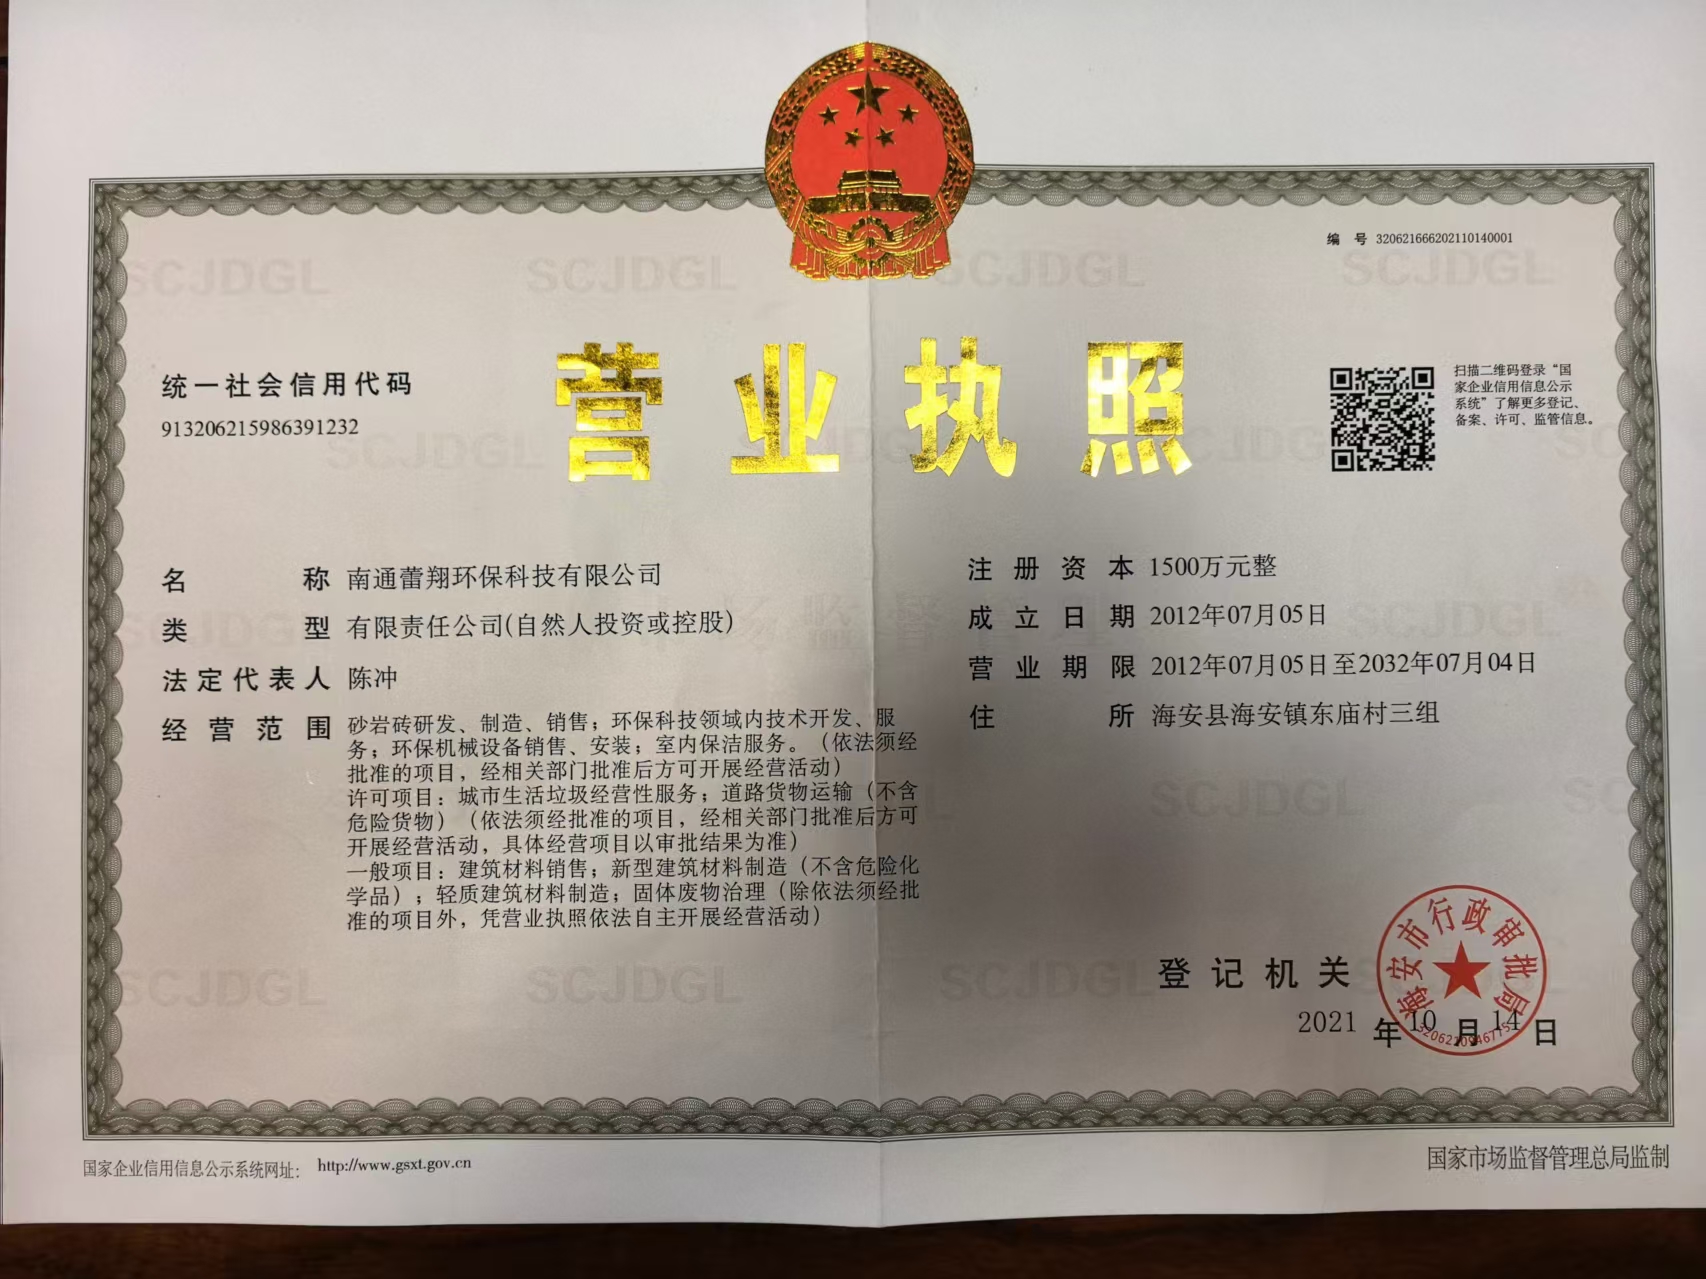 编 号 320621666202110140001
营业执照
统一社会信用代码
913206215986391232
扫描二维码登录“国
家企业信用信息公示
系统”了解更多登记、
备案、许可、监管信息。
名 称 南通蕾翔环保科技有限公司
类 型 有限责任公司(自然人投资或控股)
法定代表人 陈冲
经营范围 砂岩砖研发、制造、销售；环保科技领域内技术开发、服
务；环保机械设备销售、安装；室内保洁服务。（依法须经
批准的项目，经相关部门批准后方可开展经营活动）
许可项目：城市生活垃圾经营性服务；道路货物运输（不含
危险货物）（依法须经批准的项目，经相关部门批准后方可
开展经营活动，具体经营项目以审批结果为准）
一般项目：建筑材料销售；新型建筑材料制造（不含危险化
学品）；轻质建筑材料制造；固体废物治理（除依法须经批
准的项目外，凭营业执照依法自主开展经营活动）
注册资本 1500万元整
成立日期 2012年07月05日
营业期限 2012年07月05日至2032年07月04日
住 所 海安县海安镇东庙村三组
登记机关
海安市行政审批局
2021 年 10 月 14 日
国家企业信用信息公示系统网址： http://www.gsxt.gov.cn
国家市场监督管理总局监制
SCJDGL